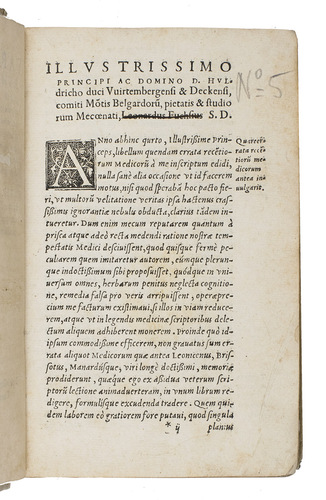 ILLVSTRISSIMO
PRINCIPI AC DOMINO D. HVL
dricho duci Vuirtembergensi & Deckensi,
comiti Mōtis Belgardorū, pietatis & studio
rum Mecœnati, Leonardus Fuchsius S. D.
No 5
ANno abhinc quarto, Illustrissime Prin-
ceps, libellum quendam errata recētio-
rum Medicorū à me inscriptum edidi,
nulla sanè alia occasione vt id facerem
motus, nisi quod sperabā hoc pacto fie-
ri, vt multorū velitatione veritas ipsa hactenus cras-
sissimis ignorantiæ nebulis obducta, clarius tādem in-
tueretur. Dum enim mecum reputarem quantum à
prisca atque adeò recta medendi ratione nostræ tem-
pestatis Medici desciuissent, quod quisque fermè pe-
culiarem quem imitaretur autorem, eūmque plerun-
que indoctissimum sibi proposuisset, quódque in vni-
uersum omnes, herbarum penitus neglecta cognitio-
ne, remedia falsa pro veris arripuissent, operæpre-
cium me facturum existimaui, si illos in viam reduce-
rem, atque vt in legendis medicinæ scriptoribus dele-
ctum aliquem adhiberent monerem. Proinde quò id-
ipsum commodissimè efficerem, non grauatus sum er-
rata aliquot Medicorum quæ antea Leonicenus, Bris-
sotus, Manardúsque, viri longè doctissimi, memoriæ
prodiderunt, quæque ego ex assidua veterum scri-
ptorū lectione animaduerteram, in vnum librum re-
digere, formulísque excudenda tradere. Quem qui-
dem laborem eò gratiorem fore putaui, quod singula
* ij planius
errata recē-
tiorū me-
dicorum
antea in
uulgarit.